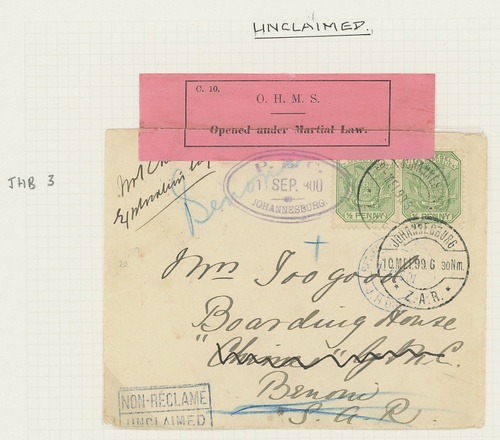 UNCLAIMED.
C. 10.
O. H. M. S.
Opened under Martial Law.
JHB 3
1 SEP. 900
JOHANNESBURG.
Benoni
½ PENNY
½ PENNY
JOHANNESBURG
10 MEI.99. 6 30Nm.
Z.A.R.
Mrs Toogood
Boarding House
"China"
Benoni
S. A. R.
NON-RÉCLAMÉ
UNCLAIMED